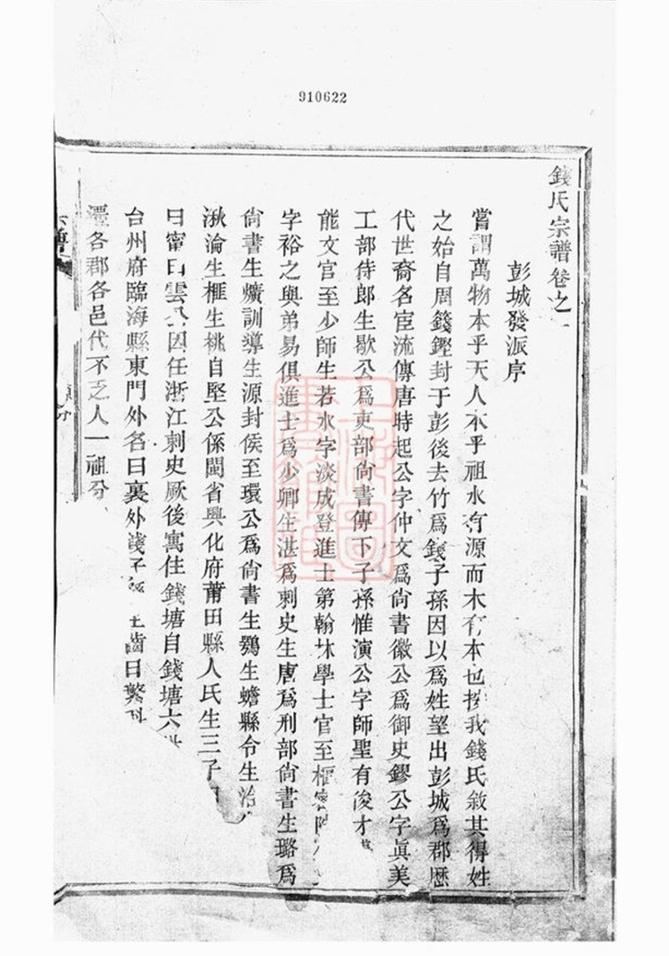 910622
錢氏宗譜卷之一
彭城發派序
嘗謂萬物本乎天人本乎祖水有源而木有本也按我錢氏敘其得姓
之始自周籛鏗封于彭後去竹爲錢子孫因以爲姓望出彭城爲郡歷
代世裔名宦流傳唐時起公字仲文爲尚書徽公爲御史鏐公字眞美
工部侍郎生歇公爲吏部尚書傳下子孫惟演公字師聖有俊才
能文官至少師生若水字淡成登進士第翰林學士官至樞密
字裕之與弟易俱進士爲少卿生湛爲刺史生唐爲刑部尚書生璐爲
尚書生爌訓導生源封侯至環公爲尚書生鶚生蟾縣令生治
湫淪生榧生桃自堅公係閩省興化府莆田縣人氏生三子
曰甯曰雲公因任浙江刺史厥後寓住錢塘自錢塘六世
台州府臨海縣東門外名曰裏外錢 齒日繁
遷各郡各邑代不乏人一祖分